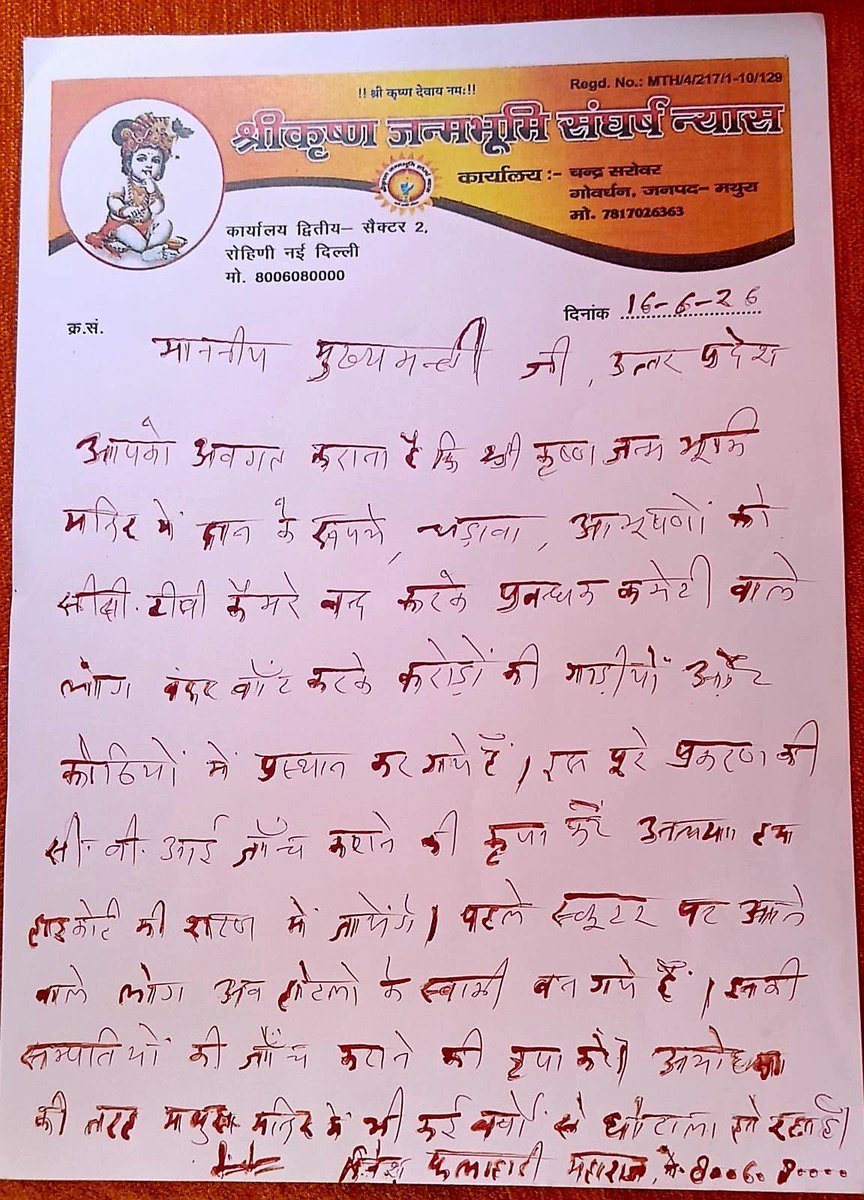 !! श्री कृष्ण देवाय नमः!!
Regd. No.: MTH/4/217/1-10/129
श्रीकृष्ण जन्मभूमि संघर्ष न्यास
कार्यालय :- चन्द्र सरोवर
गोवर्धन, जनपद– मथुरा
मो. 7817026363
कार्यालय द्वितीय– सैक्टर 2,
रोहिणी नई दिल्ली
मो. 8006080000
क्र.सं.
दिनांक 16-6-26
माननीय मुख्यमन्त्री जी, उत्तर प्रदेश
आपको अवगत कराता है कि श्री कृष्ण जन्म भूमि
मन्दिर में दान के रूपये, चढ़ावा, आभूषणों को
सीसी. टीवी कैमरे बन्द करके प्रबन्धक कमेटी वाले
लोग बंदर बाँट करके करोड़ों की गाड़ीयों और
कोठियों में प्रस्थान कर गये हैं। इस पूरे प्रकरण की
सी. बी. आई जाँच कराने की कृपा करें हम
हाइकोर्ट की शरण में जायेंगे। पहले स्कूटर पर आने
वाले लोग अब होटलो के स्वामी बन गये हैं। इनकी
सम्पतियों की जाँच कराने की कृपा करें। अयोध्या
की तरह मथुरा मन्दिर में भी कई वर्षों से घोटाला हो रहा है।
दिनेश फलाहारी महाराज, मो. 8006080000